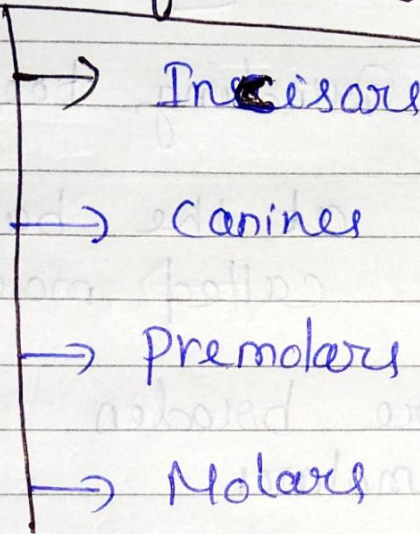 Incisors
Canines
Premolars
Molars